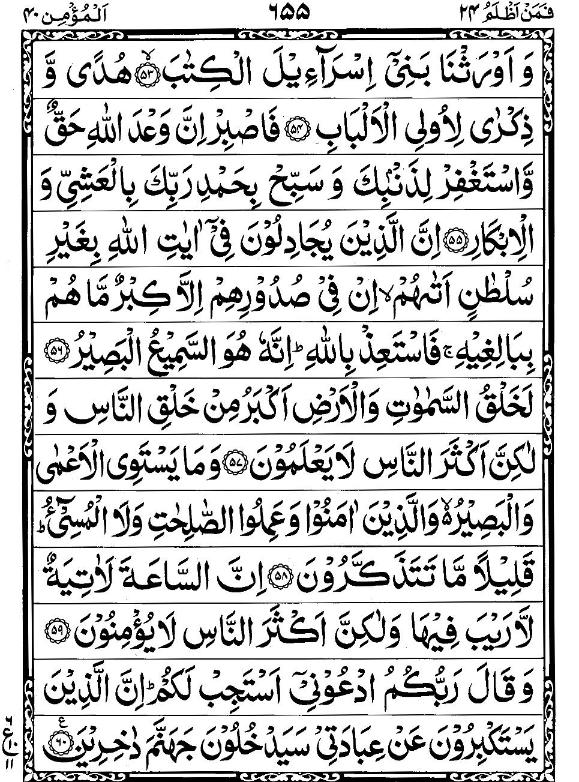 فَمَنْ اَظْلَمُ ۲۴ ۶۵۵ اَلْمُؤْمِن ۴۰
وَ اَوْرَثْنَا بَنِیْۤ اِسْرَآءِیْلَ الْكِتٰبَ ۙ﴿۵۳﴾ هُدًی وَّ
ذِكْرٰی لِاُولِی الْاَلْبَابِ ﴿۵۴﴾ فَاصْبِرْ اِنَّ وَعْدَ اللّٰهِ حَقٌّ
وَّاسْتَغْفِرْ لِذَنْۢبِكَ وَ سَبِّحْ بِحَمْدِ رَبِّكَ بِالْعَشِیِّ وَ
الْاِبْكَارِ ﴿۵۵﴾ اِنَّ الَّذِیْنَ یُجَادِلُوْنَ فِیْۤ اٰیٰتِ اللّٰهِ بِغَیْرِ
سُلْطٰنٍ اَتٰىهُمْ ۙ اِنْ فِیْ صُدُوْرِهِمْ اِلَّا كِبْرٌ مَّا هُمْ
بِبَالِغِیْهِ ۚ فَاسْتَعِذْ بِاللّٰهِ ؕ اِنَّهٗ هُوَ السَّمِیْعُ الْبَصِیْرُ ﴿۵۶﴾
لَخَلْقُ السَّمٰوٰتِ وَالْاَرْضِ اَكْبَرُ مِنْ خَلْقِ النَّاسِ وَ
لٰكِنَّ اَكْثَرَ النَّاسِ لَا یَعْلَمُوْنَ ﴿۵۷﴾ وَمَا یَسْتَوِی الْاَعْمٰی
وَالْبَصِیْرُ ۙ۬ وَالَّذِیْنَ اٰمَنُوْا وَعَمِلُوا الصّٰلِحٰتِ وَلَا الْمُسِیْٓءُ ؕ
قَلِیْلًا مَّا تَتَذَكَّرُوْنَ ﴿۵۸﴾ اِنَّ السَّاعَةَ لَاٰتِیَةٌ
لَّا رَیْبَ فِیْهَا وَلٰكِنَّ اَكْثَرَ النَّاسِ لَا یُؤْمِنُوْنَ ﴿۵۹﴾
وَ قَالَ رَبُّكُمُ ادْعُوْنِیْۤ اَسْتَجِبْ لَكُمْ ؕ اِنَّ الَّذِیْنَ
یَسْتَكْبِرُوْنَ عَنْ عِبَادَتِیْ سَیَدْخُلُوْنَ جَهَنَّمَ دٰخِرِیْنَ ﴿۶۰﴾ ع
۶
ع ۱۰
۱۱